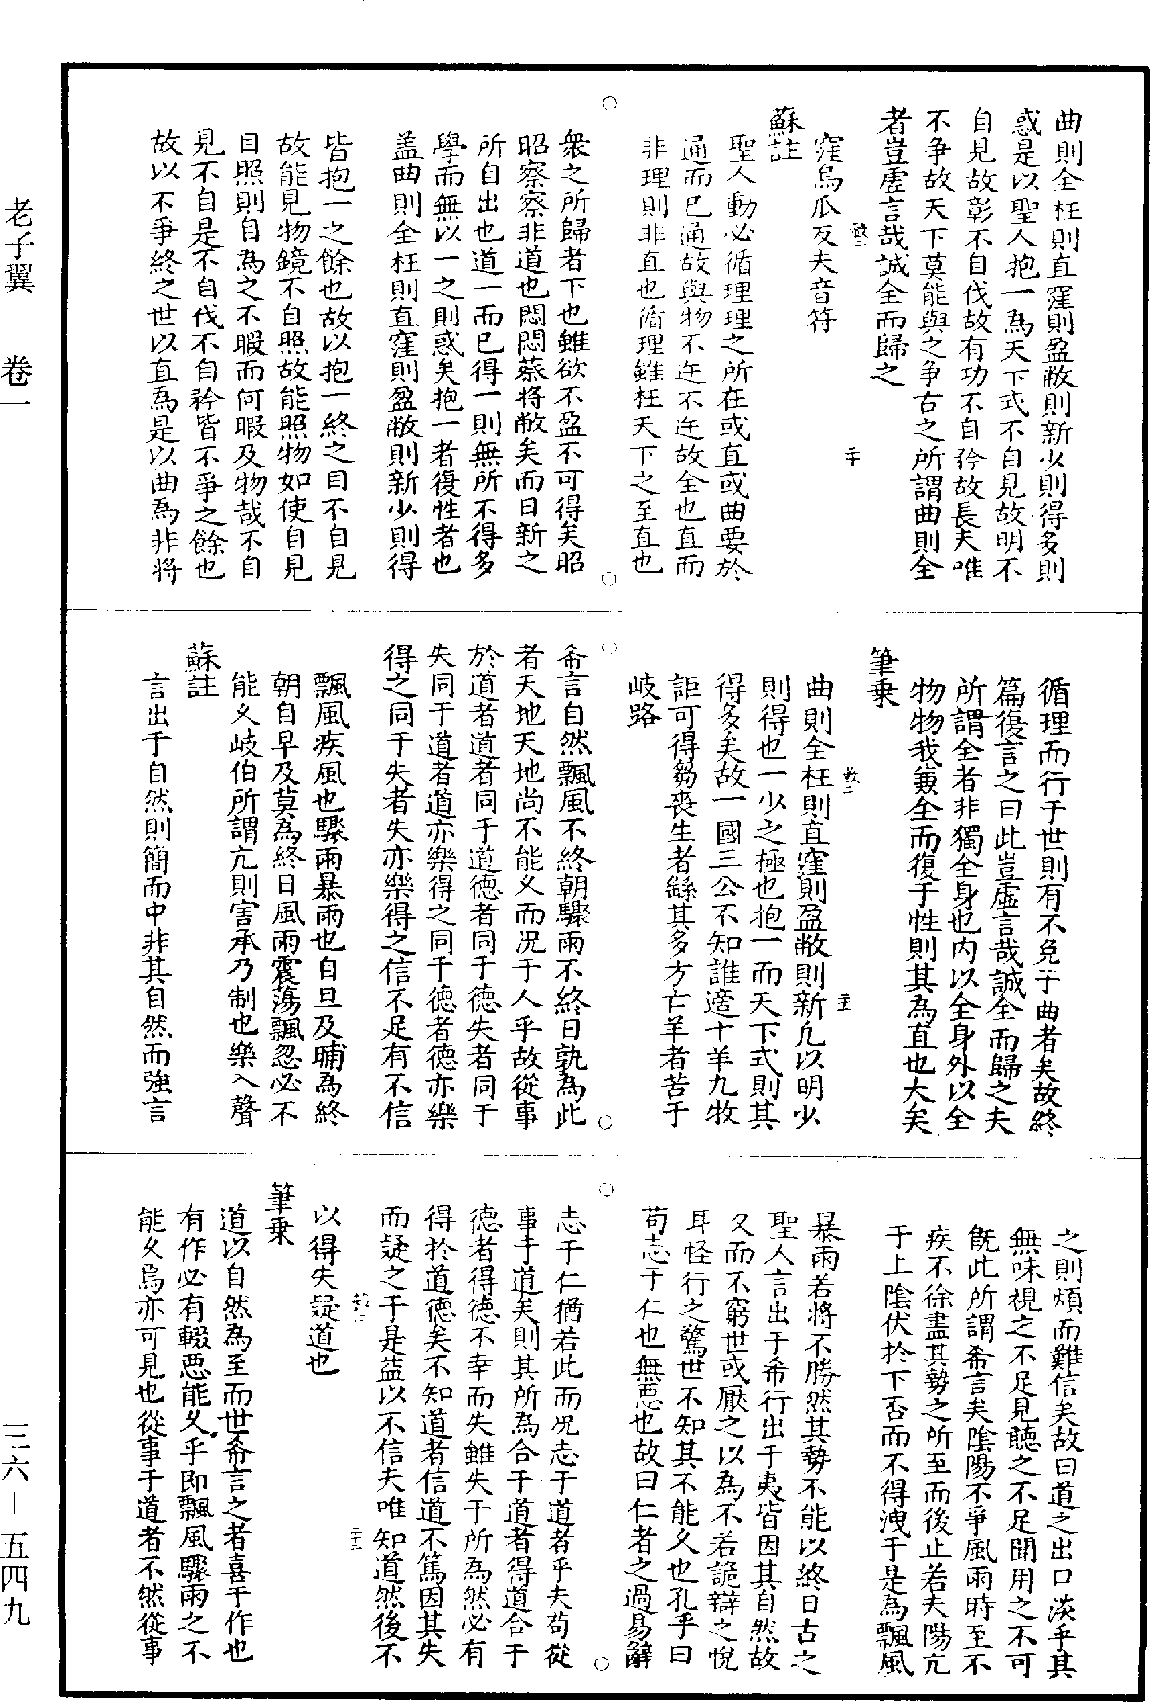 曲則全枉則直窪則盈敝則新少則得多則
惑是以聖人抱一為天下式不自見故明不
自見故彰不自伐故有功不自矜故長夫唯
不爭故天下莫能與之爭古之所謂曲則全
者豈虛言哉誠全而歸之
窪烏瓜反夫音符
蘇註
聖人動必循理理之所在或直或曲要於
通而已通故與物不迕不迕故全也直而
非理則非直也循理雖枉天下之至直也
眾之所歸者下也雖欲不盈不可得矣昭
昭察察非道也悶悶蔡將敝矣而日新之
所自出也道一而已得一則無所不得多
學而無以一之則惑矣抱一者復性者也
蓋曲則全枉則直窪則盈敝則新少則得
皆抱一之餘也故以抱一終之目不自見
故能見物鏡不自照故能照物如使自見
目照則自為之不暇而何暇及物哉不自
見不自是不自伐不自矜皆不爭之餘也
故以不爭終之世以直為是以曲為非將
循理而行于世則有不免于曲者矣故終
篇復言之曰此豈虛言哉誠全而歸之夫
所謂全者非獨全身也内以全身外以全
物物我兼全而復于性則其為直也大矣
筆乗
曲則全枉則直窪則盈敝則新凢以明少
則得也一少之極也抱一而天下式則其
得多矣故一國三公不知誰適十羊九牧
詎可得芻喪生者繇其多方亡羊者苦于
岐路
希言自然飄風不終朝驟雨不終日孰為此
者天地天地尚不能久而況于人乎故從事
於道者道者同于道德者同于德失者同于
失同于道者道亦樂得之同于德者德亦樂
得之同于失者失亦樂得之信不足有不信
飄風疾風也驟雨暴雨也自旦及晡為終
朝自早及莫為終日風雨震蕩飄忽必不
能久岐伯所謂亢則害承乃制也樂入聲
蘇註
言出于自然則簡而中非其自然而強言
之則煩而難信矣故曰道之出口淡乎其
無味視之不足見聽之不足聞用之不可
旣此所謂希言矣隂陽不爭風雨時至不
疾不徐盡其勢之所至而後止若夫陽亢
于上隂伏於下否而不得洩于是為飄風
暴雨若將不勝然其勢不能以終日古之
聖人言出于希行出于夷皆因其自然故
久而不窮世或厭之以為不若詭辯之悅
耳怪行之驚世不知其不能久也孔子曰
苟志于仁也無惡也故曰仁者之過易辭
志于仁猶若此而況志于道者乎夫苟從
事于道矣則其所為合于道者得道合于
德者得德不幸而失雖失于所為然必有
得於道德矣不知道者信道不篤因其失
而疑之于是益以不信夫唯知道然後不
以得失疑道也
筆乗
道以自然為至而世希言之者喜于作也
有作必有輟惡能久乎即飄風驟雨之不
能久焉亦可見也從事于道者不然從事
老子翼　卷一
三六－五四九